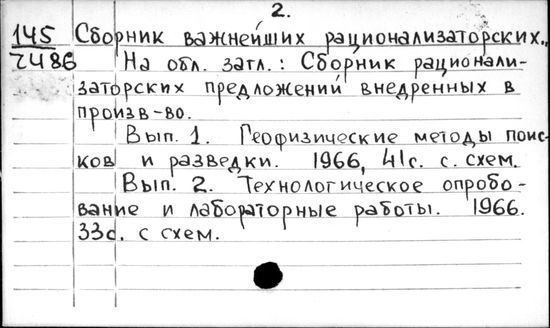 2.
145 Сборник важнейших рационализаторских..
2486 На обл. загл.: Сборник рационали-
заторских предложений внедренных в
произв-во.
Вып. 1. Геофизические методы поис-
ков и разведки. 1966, 41с. с схем.
Вып. 2. Технологическое опробо-
вание и лабораторные работы. 1966.
33с. с схем.